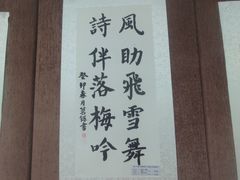 風助飛雪舞
詩伴落梅吟
癸卯春月